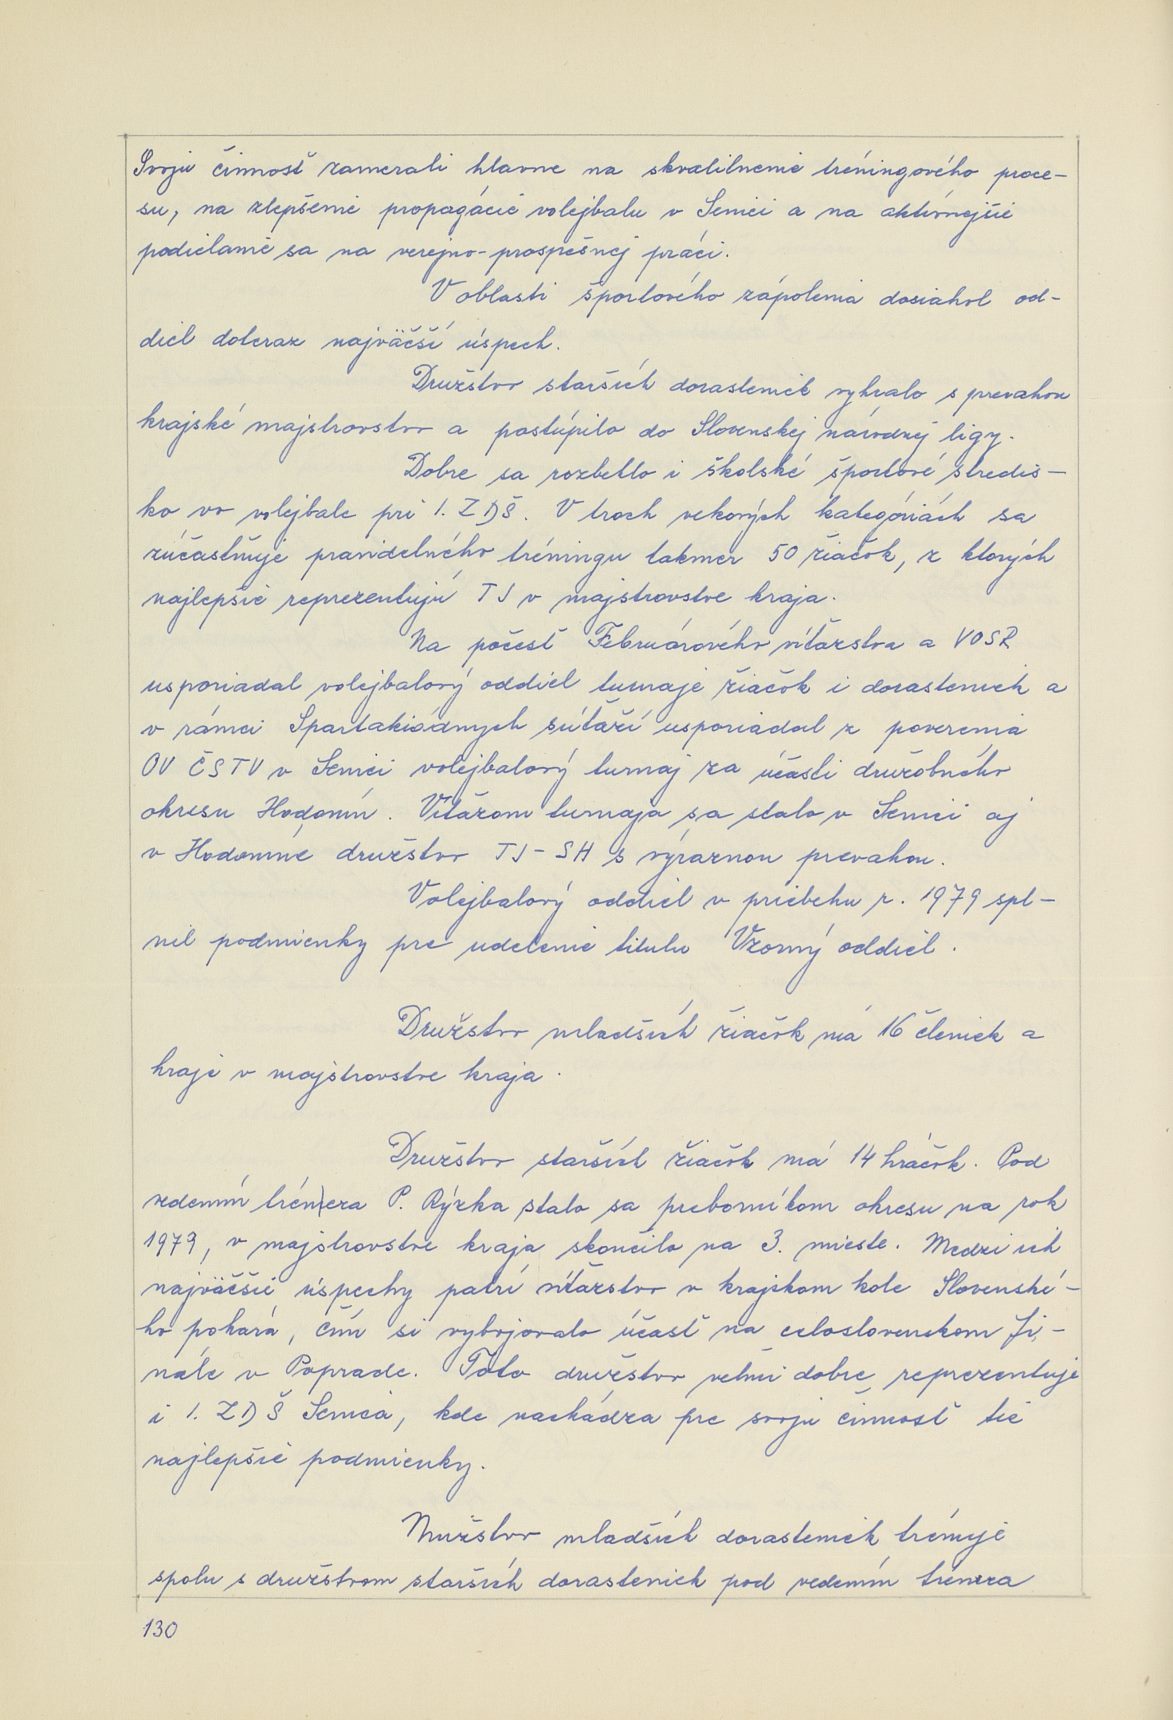 Svoju činnosť zamerali hlavne na skvalitnenie tréningového proce-
su, na zlepšenie propagácie volejbalu v Senici a na aktívnejšie
podielanie sa na verejno-prospešnej práci.
V oblasti športového zápolenia dosiahol od-
diel doteraz najväčší úspech.
Družstvo starších dorasteniek vyhralo s prevahou
krajské majstrovstvo a postúpilo do Slovenskej národnej ligy.
Dobre sa rozbehlo i školské športové stredis-
ko vo volejbale pri 1. ZDŠ. V troch vekových kategóriách sa
zúčastňuje pravidelného tréningu takmer 50 žiačok, z ktorých
najlepšie reprezentujú TJ v majstrovstve kraja.
Na počesť Februárového víťazstva a VOSR
usporiadal volejbalový oddiel turnaje žiačok i dorasteniek a
v rámci Spartakiádnych súťaží usporiadal z poverenia
OV ČSTV v Senici volejbalový turnaj za účasti družobného
okresu Hodonín. Víťazom turnaja sa stalo v Senici aj
v Hodoníne družstvo TJ-SH s výraznou prevahou.
Volejbalový oddiel v priebehu r. 1979 spl-
nil podmienky pre udelenie titulu Vzorný oddiel.
Družstvo mladších žiačok má 16 členiek a
hraje v majstrovstve kraja.
Družstvo starších žiačok má 14 hráčok. Pod
vedením trénera P. Rýzka stalo sa preborníkom okresu na rok
1979, v majstrovstve kraja skončilo na 3. mieste. Medzi ich
najväčšie úspechy patrí víťazstvo v krajskom kole Slovenské-
ho pohára, čím si vybojovalo účasť na celoslovenskom fi-
nále v Poprade. Toto družstvo veľmi dobre reprezentuje
i 1. ZDŠ Senica, kde nachádza pre svoju činnosť tie
najlepšie podmienky.
Mužstvo mladších dorasteniek trénuje
spolu s družstvom starších dorasteniek pod vedením trénera
130